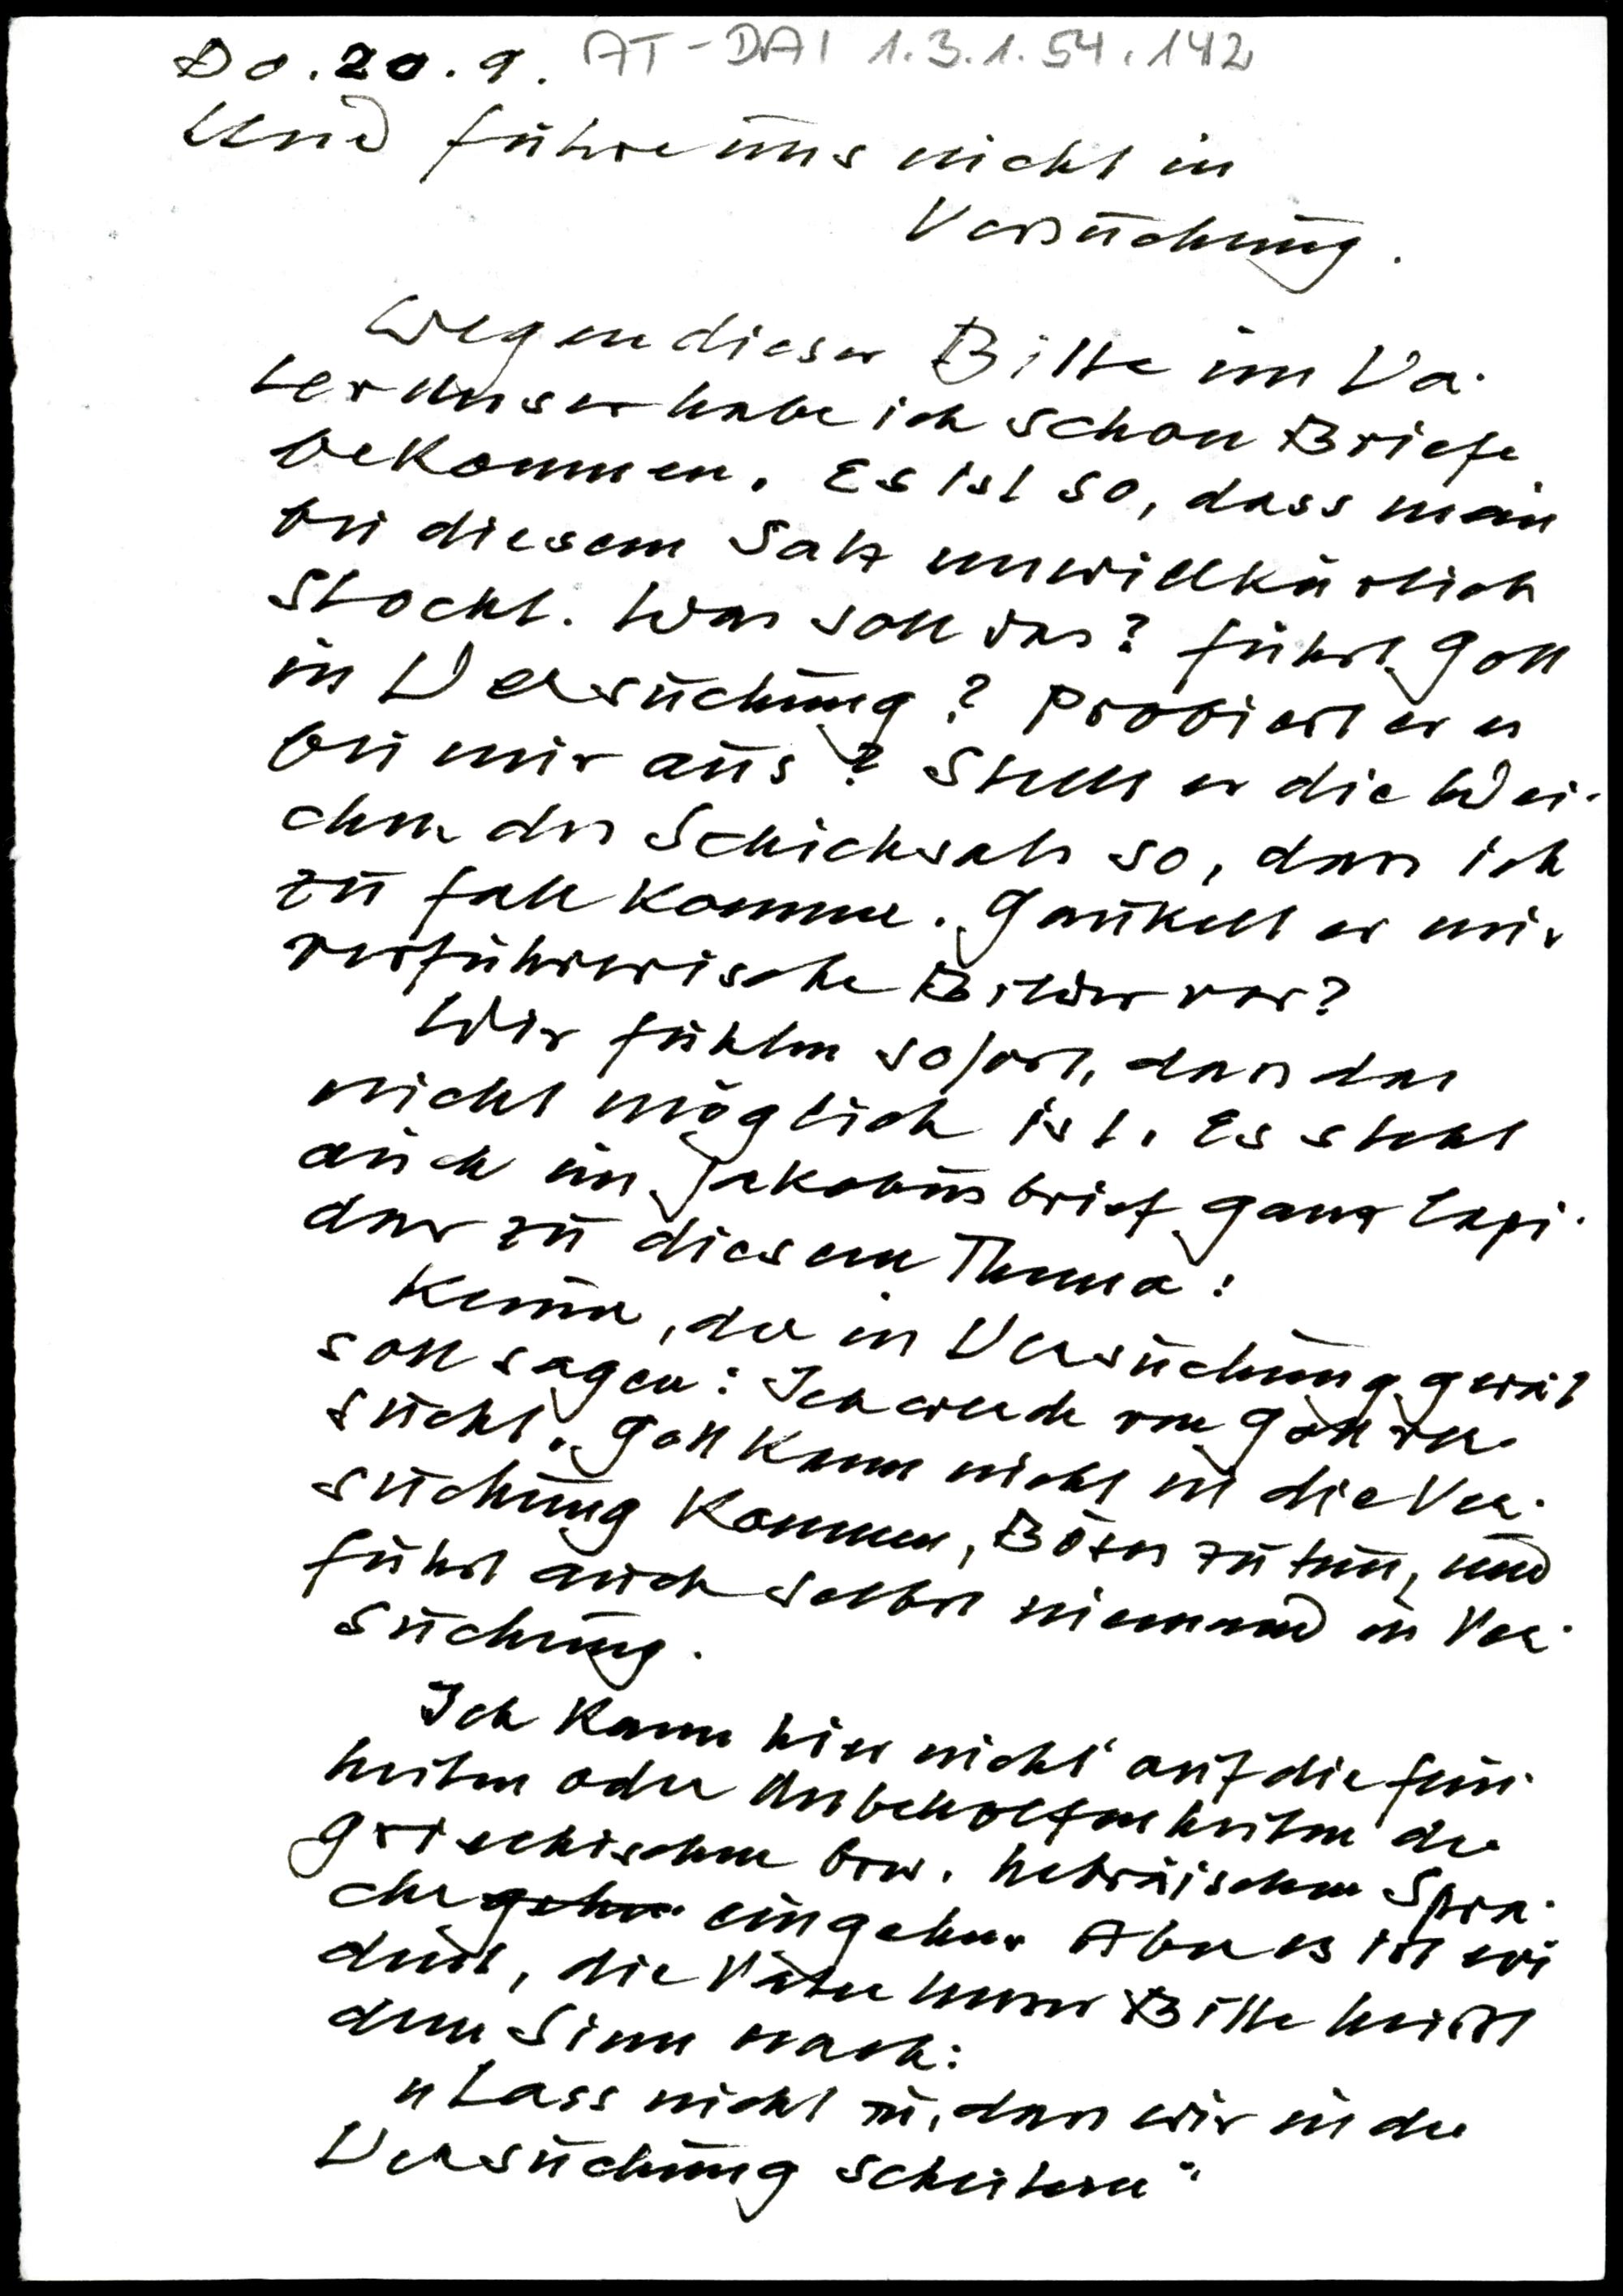 Do. 20. 9. AT-DAI 1.3.1.54.142
Und führe uns nicht in
Versuchung.
Wegen dieser Bitte im Va-
terunser habe ich schon Briefe
bekommen. Es ist so, dass man
bei diesem Satz unwillkürlich
stockt. Was soll das? Führt Gott
in Versuchung? Probiert er es
bei mir aus? Stellt er die Wei-
chen des Schicksals so, dass ich
zu Fall komme. Gaukelt er mir
verführerische Bilder vor?
Wir fühlen sofort, dass das
nicht möglich ist. Es steht
auch im Jakobusbrief ganz lapi-
dar zu diesem Thema:
Keiner, der in Versuchung gerät
soll sagen: Ich werde von Gott ver-
sucht. Gott kann nicht in die Ver-
suchung kommen, Böses zu tun, und
führt auch selbst niemand in Ver-
suchung.
Ich kann hier nicht auf die Fein-
heiten oder Unbeholfenheiten der
griechischen bzw. hebräischen Spra-
che gehen eingehen. Aber es ist wi
deutl, die Vater unser Bitte heisst
dem Sinn nach:
"Lass nicht zu, dass wir in der
Versuchung scheitern"